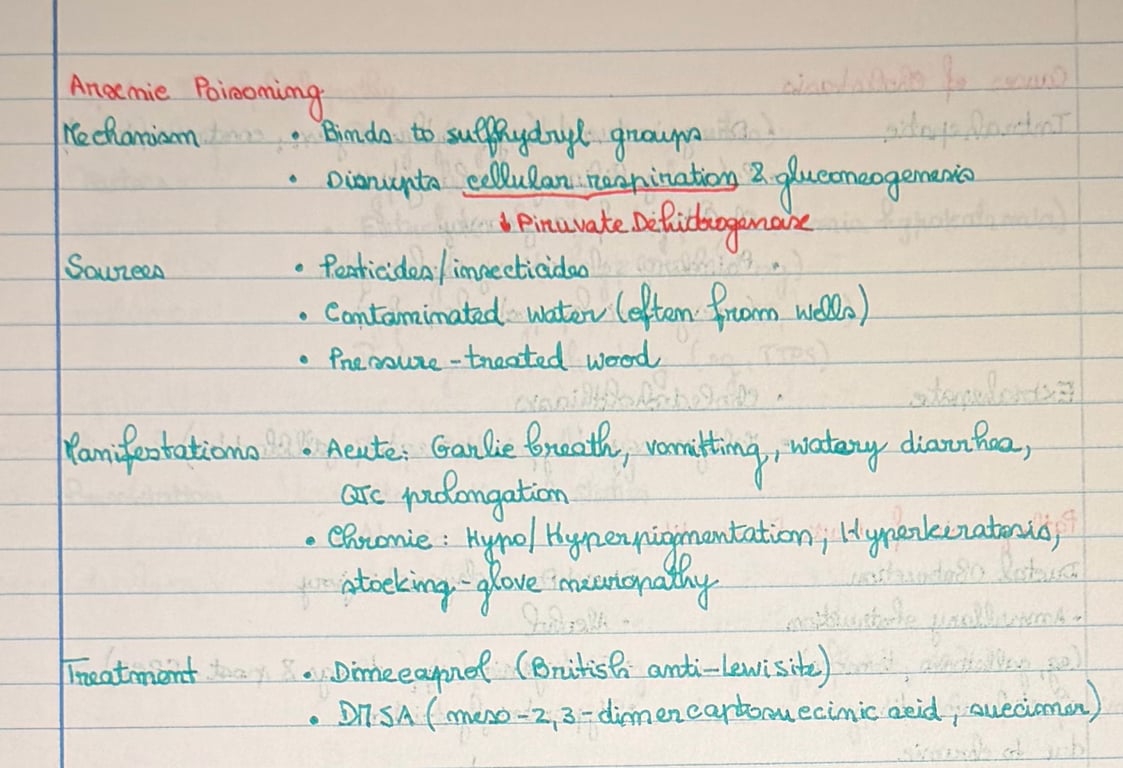 Arsenic Poisoning
Mechanism • Binds to sulfhydryl groups
• Disrupts cellular respiration & gluconeogenesis
↓ Piruvate Dehidrogenase
Sources • Pesticides/insecticides
• Contaminated water (often from wells)
• Pressure-treated wood
Manifestations • Acute: Garlic breath, vomitting, watery diarrhea,
QTc prolongation
• Chronic: Hypo/Hyperpigmentation, Hyperkeratosis,
stocking-glove neuropathy
Treatment • Dimercaprol (British anti-Lewisite)
• DMSA (meso-2,3-dimercaptosuccinic acid, succimer)